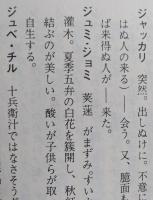 ジャッカリ 突然。出しぬけに。不意に
はぬ人の来る)――会う。又、臆面も
ば来得ぬ人が――来た。
ジュミ・ジョミ 莢蒾 がまずみ。
灌木。夏季五弁の白花を簇開し、秋
結ぶのが美しい。酸いが子供らが取
自生する。
ジュベ・チル 十兵衛汁ではなさそう